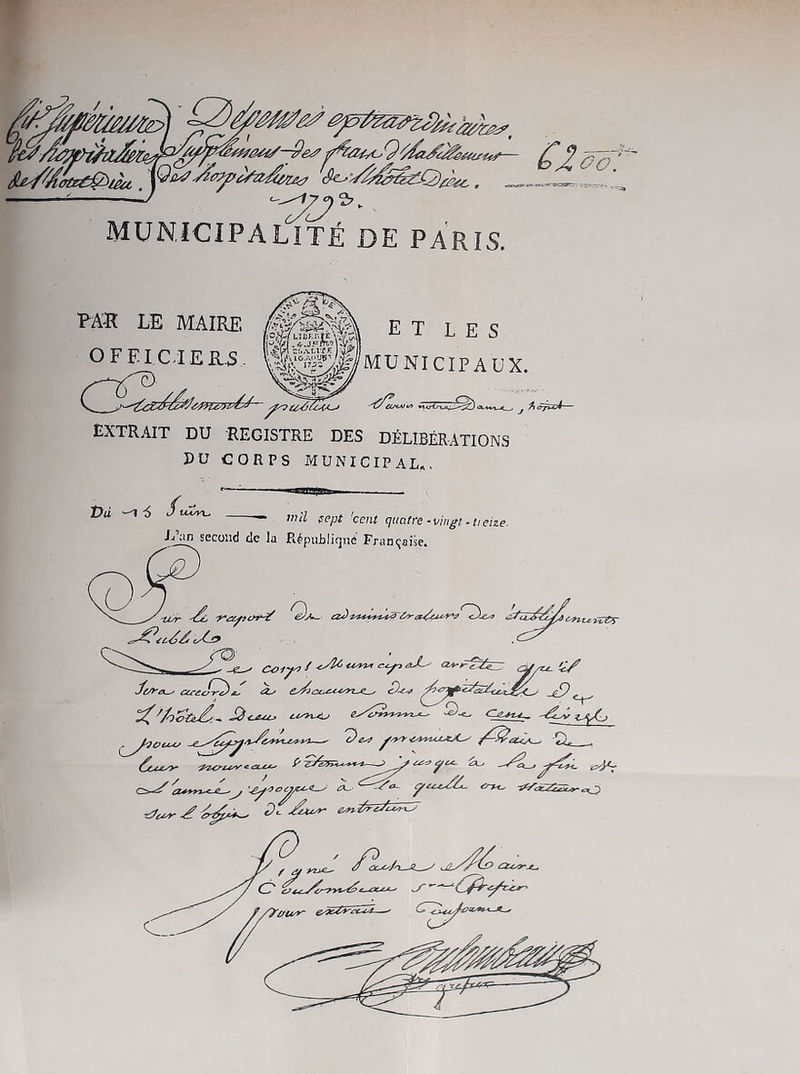 La Supérieure Dépenses extraordinaires.
les hospitalières Supplément des frais d'habillement
de l'hotel Dieu. des hospitalières de l'Hotel Dieu. 6200.
1793.
MUNICIPALITÉ DE PARIS.
PAR LE MAIRE ET LES
OFFICIERS MUNICIPAUX.
COMMUNE DE PARIS
LIBERTÉ
1792
Etablissements publics
EXTRAIT DU REGISTRE DES DÉLIBÉRATIONS
DU CORPS MUNICIPAL.
Du 16 Juin mil sept cent quatre-vingt-treize.
L'an second de la République Française.
Sur le raport des administrateurs des établissements
Publics
Le Corps Municipal arrête qu'il
sera accordé à chacune des hospitalières de
l'hôtel-Dieu une somme de Cent livres
pour supplément des premiers frais de
leur nouveau vêtement jusque à la fin de
l'année, époque à laquelle on statuera
sur l'objet de leur entretien
Signé Pache Maire
Coulombeau Greffier
Pour extrait Conforme
Coulombeau
greffier